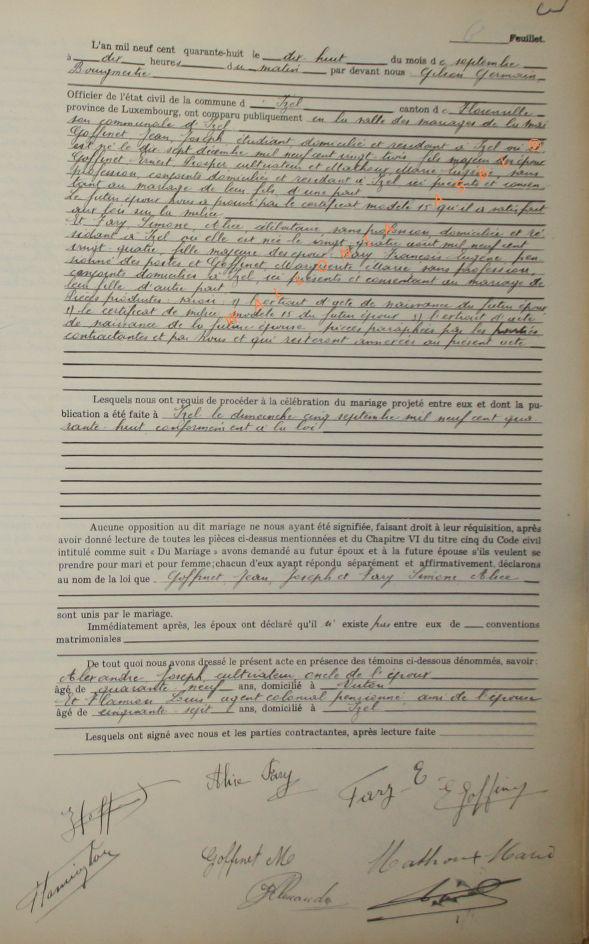 Feuillet.
L'an mil neuf cent quarante-huit le dix huit du mois de septembre
à dix heures du matin par devant nous Gilson Germain
Bourgmestre
Officier de l'état civil de la commune d' Izel canton de Florenville
province de Luxembourg, ont comparu publiquement en la salle des mariages de la mai
son communale d'Izel
Goffinet Jean Joseph étudiant domicilié et résidant à Izel où il
est né le dix sept décembre mil neuf cent vingt trois, fils majeur des époux
Goffinet Ernest Prosper cultivateur et Mathoux Marie sans
profession, conjoints domiciliés et résidant à Izel ici présents et consen
tant au mariage de leur fils d'une part
Le futur époux nous a prouvé par le certificat modèle 15 qu'il a satisfait
aux lois sur la milice
Et Fary Simone, Alice célibataire, sans profession, domiciliée et ré
sidant à Izel où elle est née le vingt quatre août mil neuf cent
vingt quatre, fille majeure des époux Fary François Eugène pen
sionné des postes et Goffinet, Marguerite Marie sans profession,
conjoints domiciliés à Izel, ici présents et consentant au mariage de
leur fille d'autre part
Pièces produites: savoir: 1) l'extrait d'acte de naissance du futur époux
2) le certificat de milice modèle 15 du futur époux 3) l'extrait d'acte
de naissance de la future épouse, pièces paraphées par les parties
contractantes et par nous et qui resteront annexées au présent acte
Lesquels nous ont requis de procéder à la célébration du mariage projeté entre eux et dont la pu-
blication a été faite à Izel le dimanche cinq septembre mil neuf cent qua
rante-huit conformément à la loi
Aucune opposition au dit mariage ne nous ayant été signifiée, faisant droit à leur réquisition, après
avoir donné lecture de toutes les pièces ci-dessus mentionnées et du Chapitre VI du titre cinq du Code civil
intitulé comme suit « Du Mariage » avons demandé au futur époux et à la future épouse s'ils veulent se
prendre pour mari et pour femme; chacun d'eux ayant répondu séparément et affirmativement, déclarons
au nom de la loi que Goffinet, Jean, Joseph et Fary Simone Alice
sont unis par le mariage.
Immédiatement après, les époux ont déclaré qu'il n' existe pas entre eux de conventions
matrimoniales
De tout quoi nous avons dressé le présent acte en présence des témoins ci-dessous dénommés, savoir:
Alexandre Joseph, cultivateur, oncle de l'époux
âgé de quarante neuf ans, domicilié à
Et Hamion Louis, agent colonial pensionné, ami de l'époux
âgé de cinquante sept ans, domicilié à Izel
Lesquels ont signé avec nous et les parties contractantes, après lecture faite
Alice Fary
Fary E
E Goffinet
Goffinet M
Mathoux Marie
Alexandre